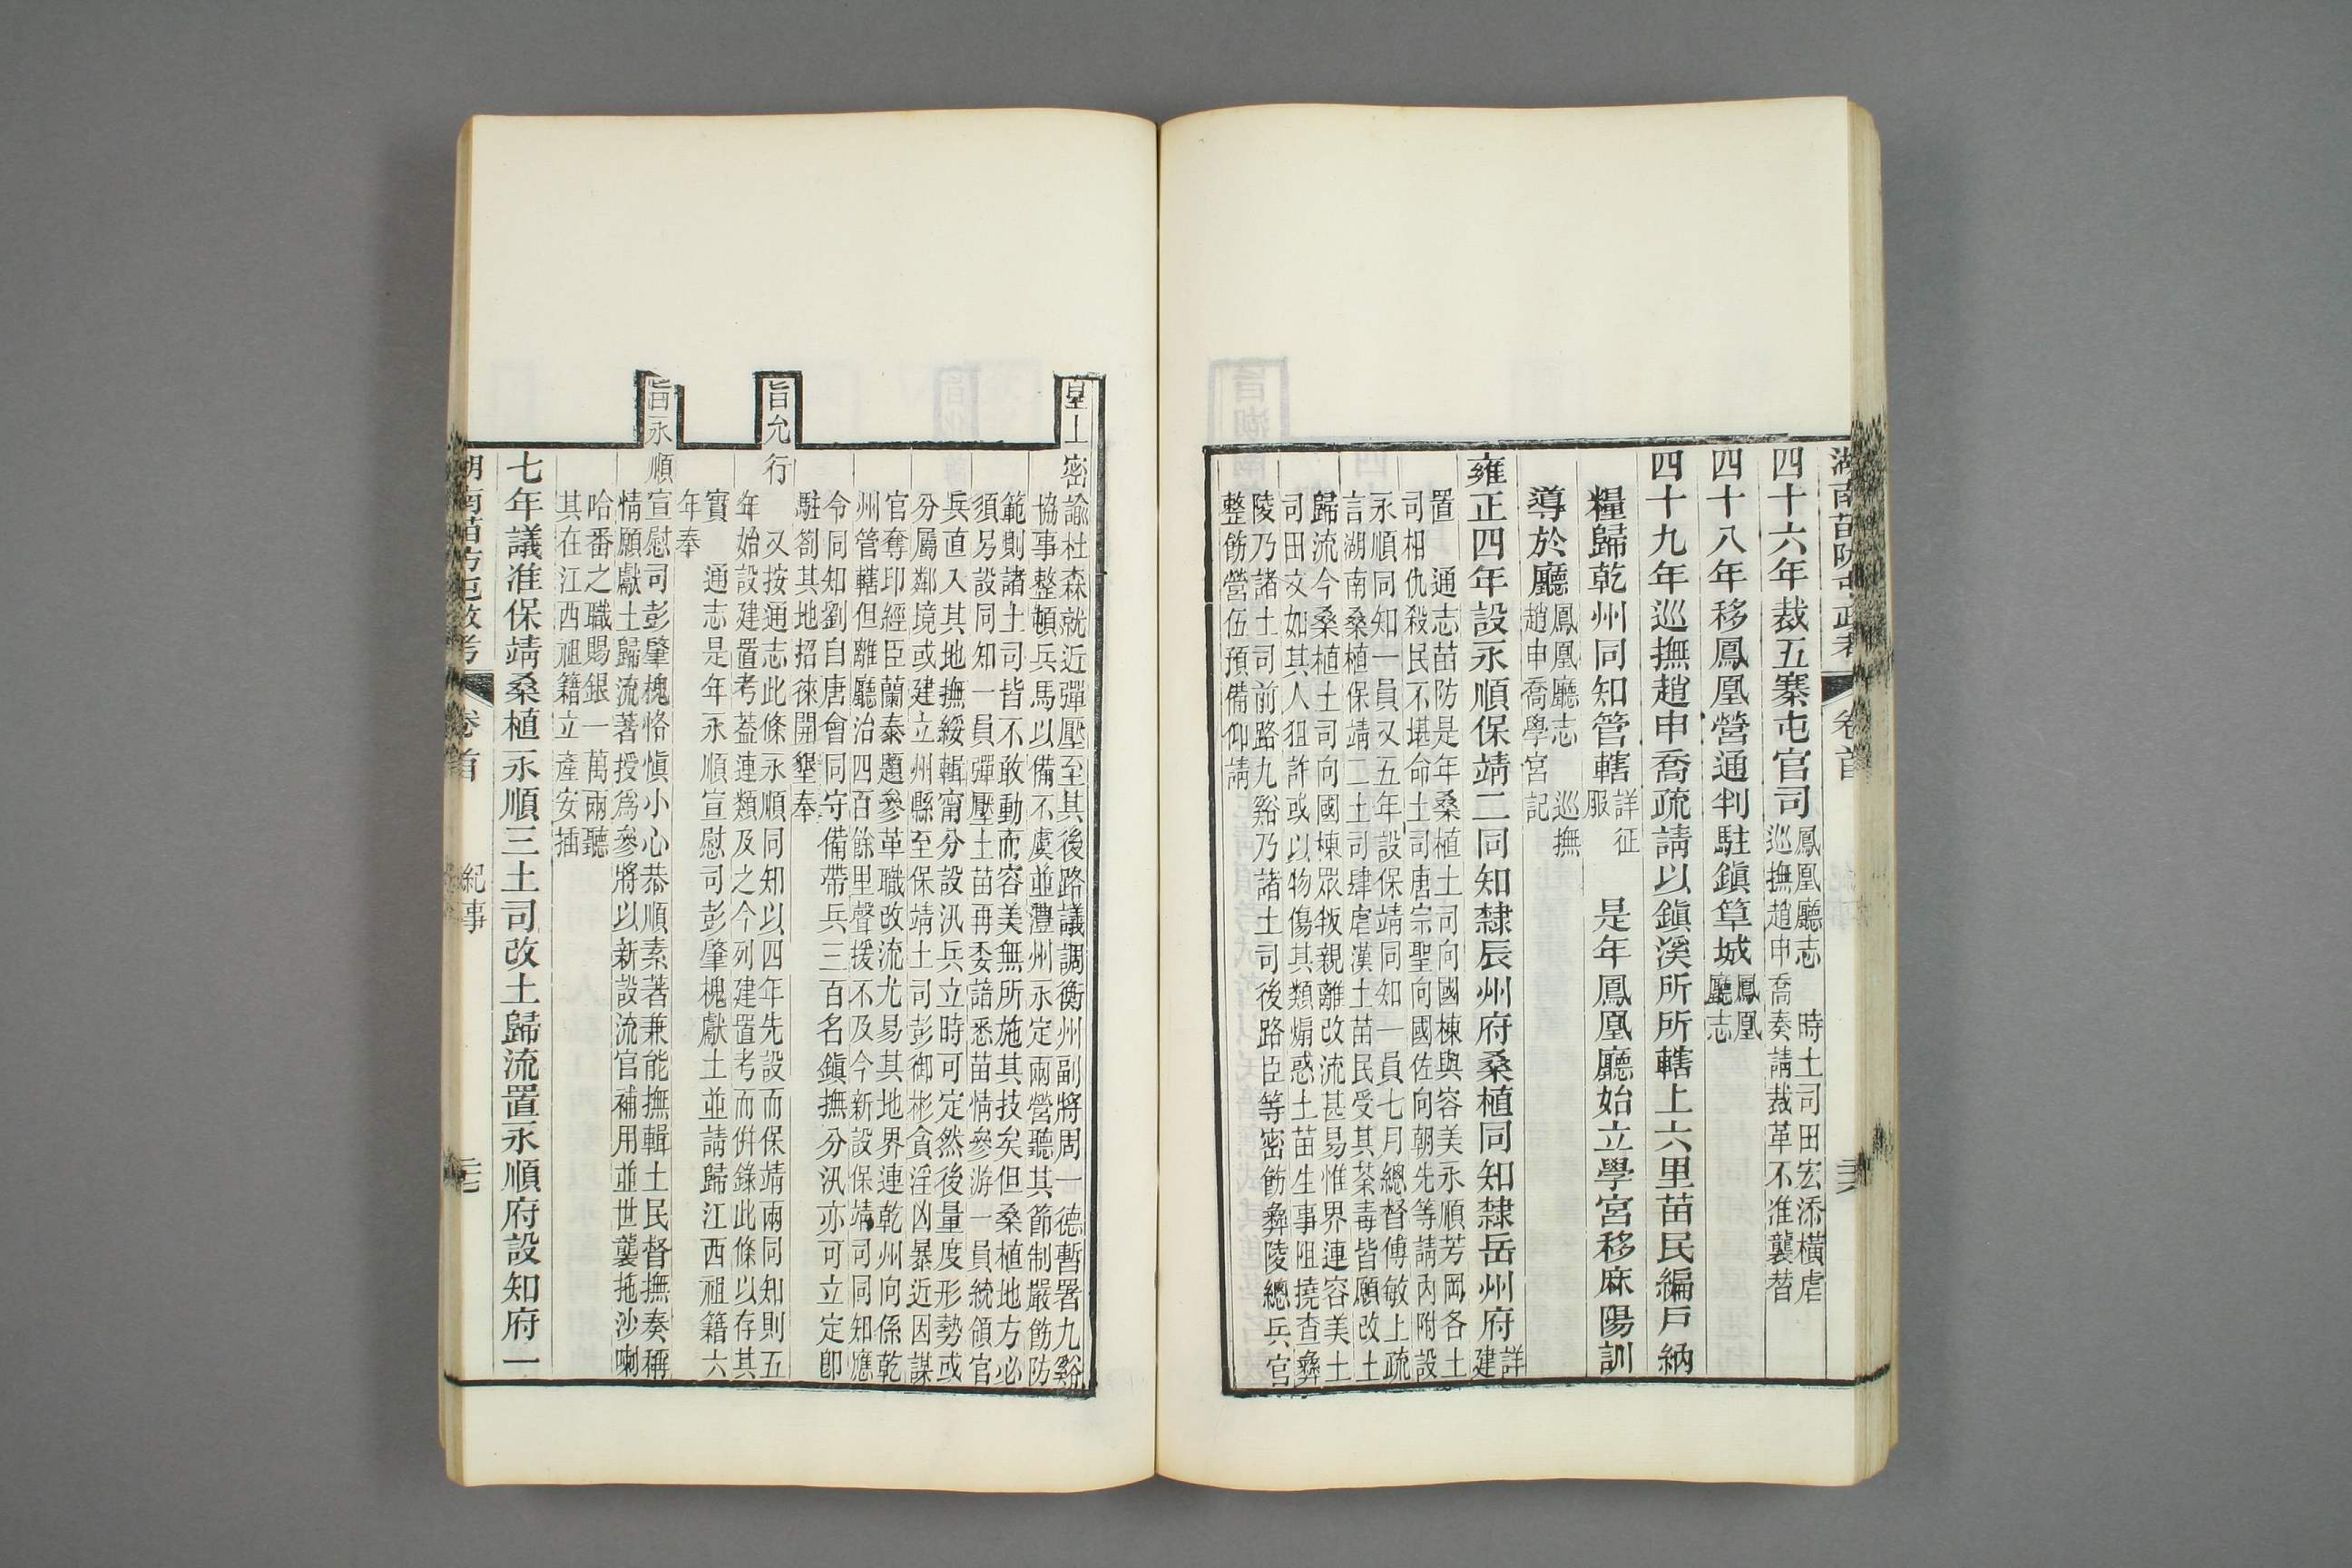 湖南苗防屯政考 卷首
四十六年裁五寨屯官司 鳳凰廳志 時土司田宏添橫虐
巡撫趙申喬奏請裁革不准襲替
四十八年移鳳凰營通判駐鎭筸城 鳳凰
廳志
四十九年巡撫趙申喬疏請以鎭溪所所轄上六里苗民編戸納
糧歸乾州同知管轄 詳征
服 是年鳳凰廳始立學宮移麻陽訓
導於廳 鳳凰廳志 巡撫
趙申喬學宮記
雍正四年設永順保靖二同知隸辰州府桑植同知隸岳州府 詳
建
置 通志苗防是年桑植土司向國棟與容美永順芳岡各土
司相仇殺民不堪命土司唐宗聖向國佐向朝先等請內附設
永順同知一員又五年設保靖同知一員七月總督傅敏上疏
言湖南桑植保靖二土司肆虐漢土苗民受其荼毒皆願改土
歸流今桑植土司向國棟眾叛親離改流甚易惟界連容美土
司田文如其人狙詐或以物傷其類煽惑土苗生事阻撓查彝
陵乃諸土司前路九谿乃諸土司後路臣等密飭彝陵總兵官
整飭營伍預備仰請
皇上密諭杜森就近彈壓至其後路議調衡州副將周一德暫署九谿
協事整頓兵馬以備不虞並澧州永定兩營聽其節制嚴飭防
範則諸土司皆不敢動而容美無所施其技矣但桑植地方必
須另設同知一員彈壓土苗再委諳悉苗情參游一員統領官
兵直入其地撫綏輯甯分設汛兵立時可定然後量度形勢或
分屬鄰境或建立州縣至保靖土司彭御彬貪淫凶暴近因謀
官奪印經臣蘭泰題參革職改流尤易其地界連乾州向係乾
州管轄但離廳治四百餘里聲援不及今新設保靖司同知應
令同知劉自唐會同守備帶兵三百名鎭撫分汛亦可立定卽
駐劄其地招徠開墾奉
旨允行 又按通志此條永順同知以四年先設而保靖兩同知則五
年始設建置考葢連類及之今列建置考而倂錄此條以存其
實 通志是年永順宣慰司彭肇槐獻土並請歸江西祖籍六
年奉
旨永順宣慰司彭肇槐恪愼小心恭順素著兼能撫輯土民督撫奏稱
情願獻土歸流著授爲參將以新設流官補用並世襲拖沙喇
哈番之職賜銀一萬兩聽
其在江西祖籍立產安插
七年議准保靖桑植永順三土司改土歸流置永順府設知府一
湖南苗防屯政考 卷首 紀事